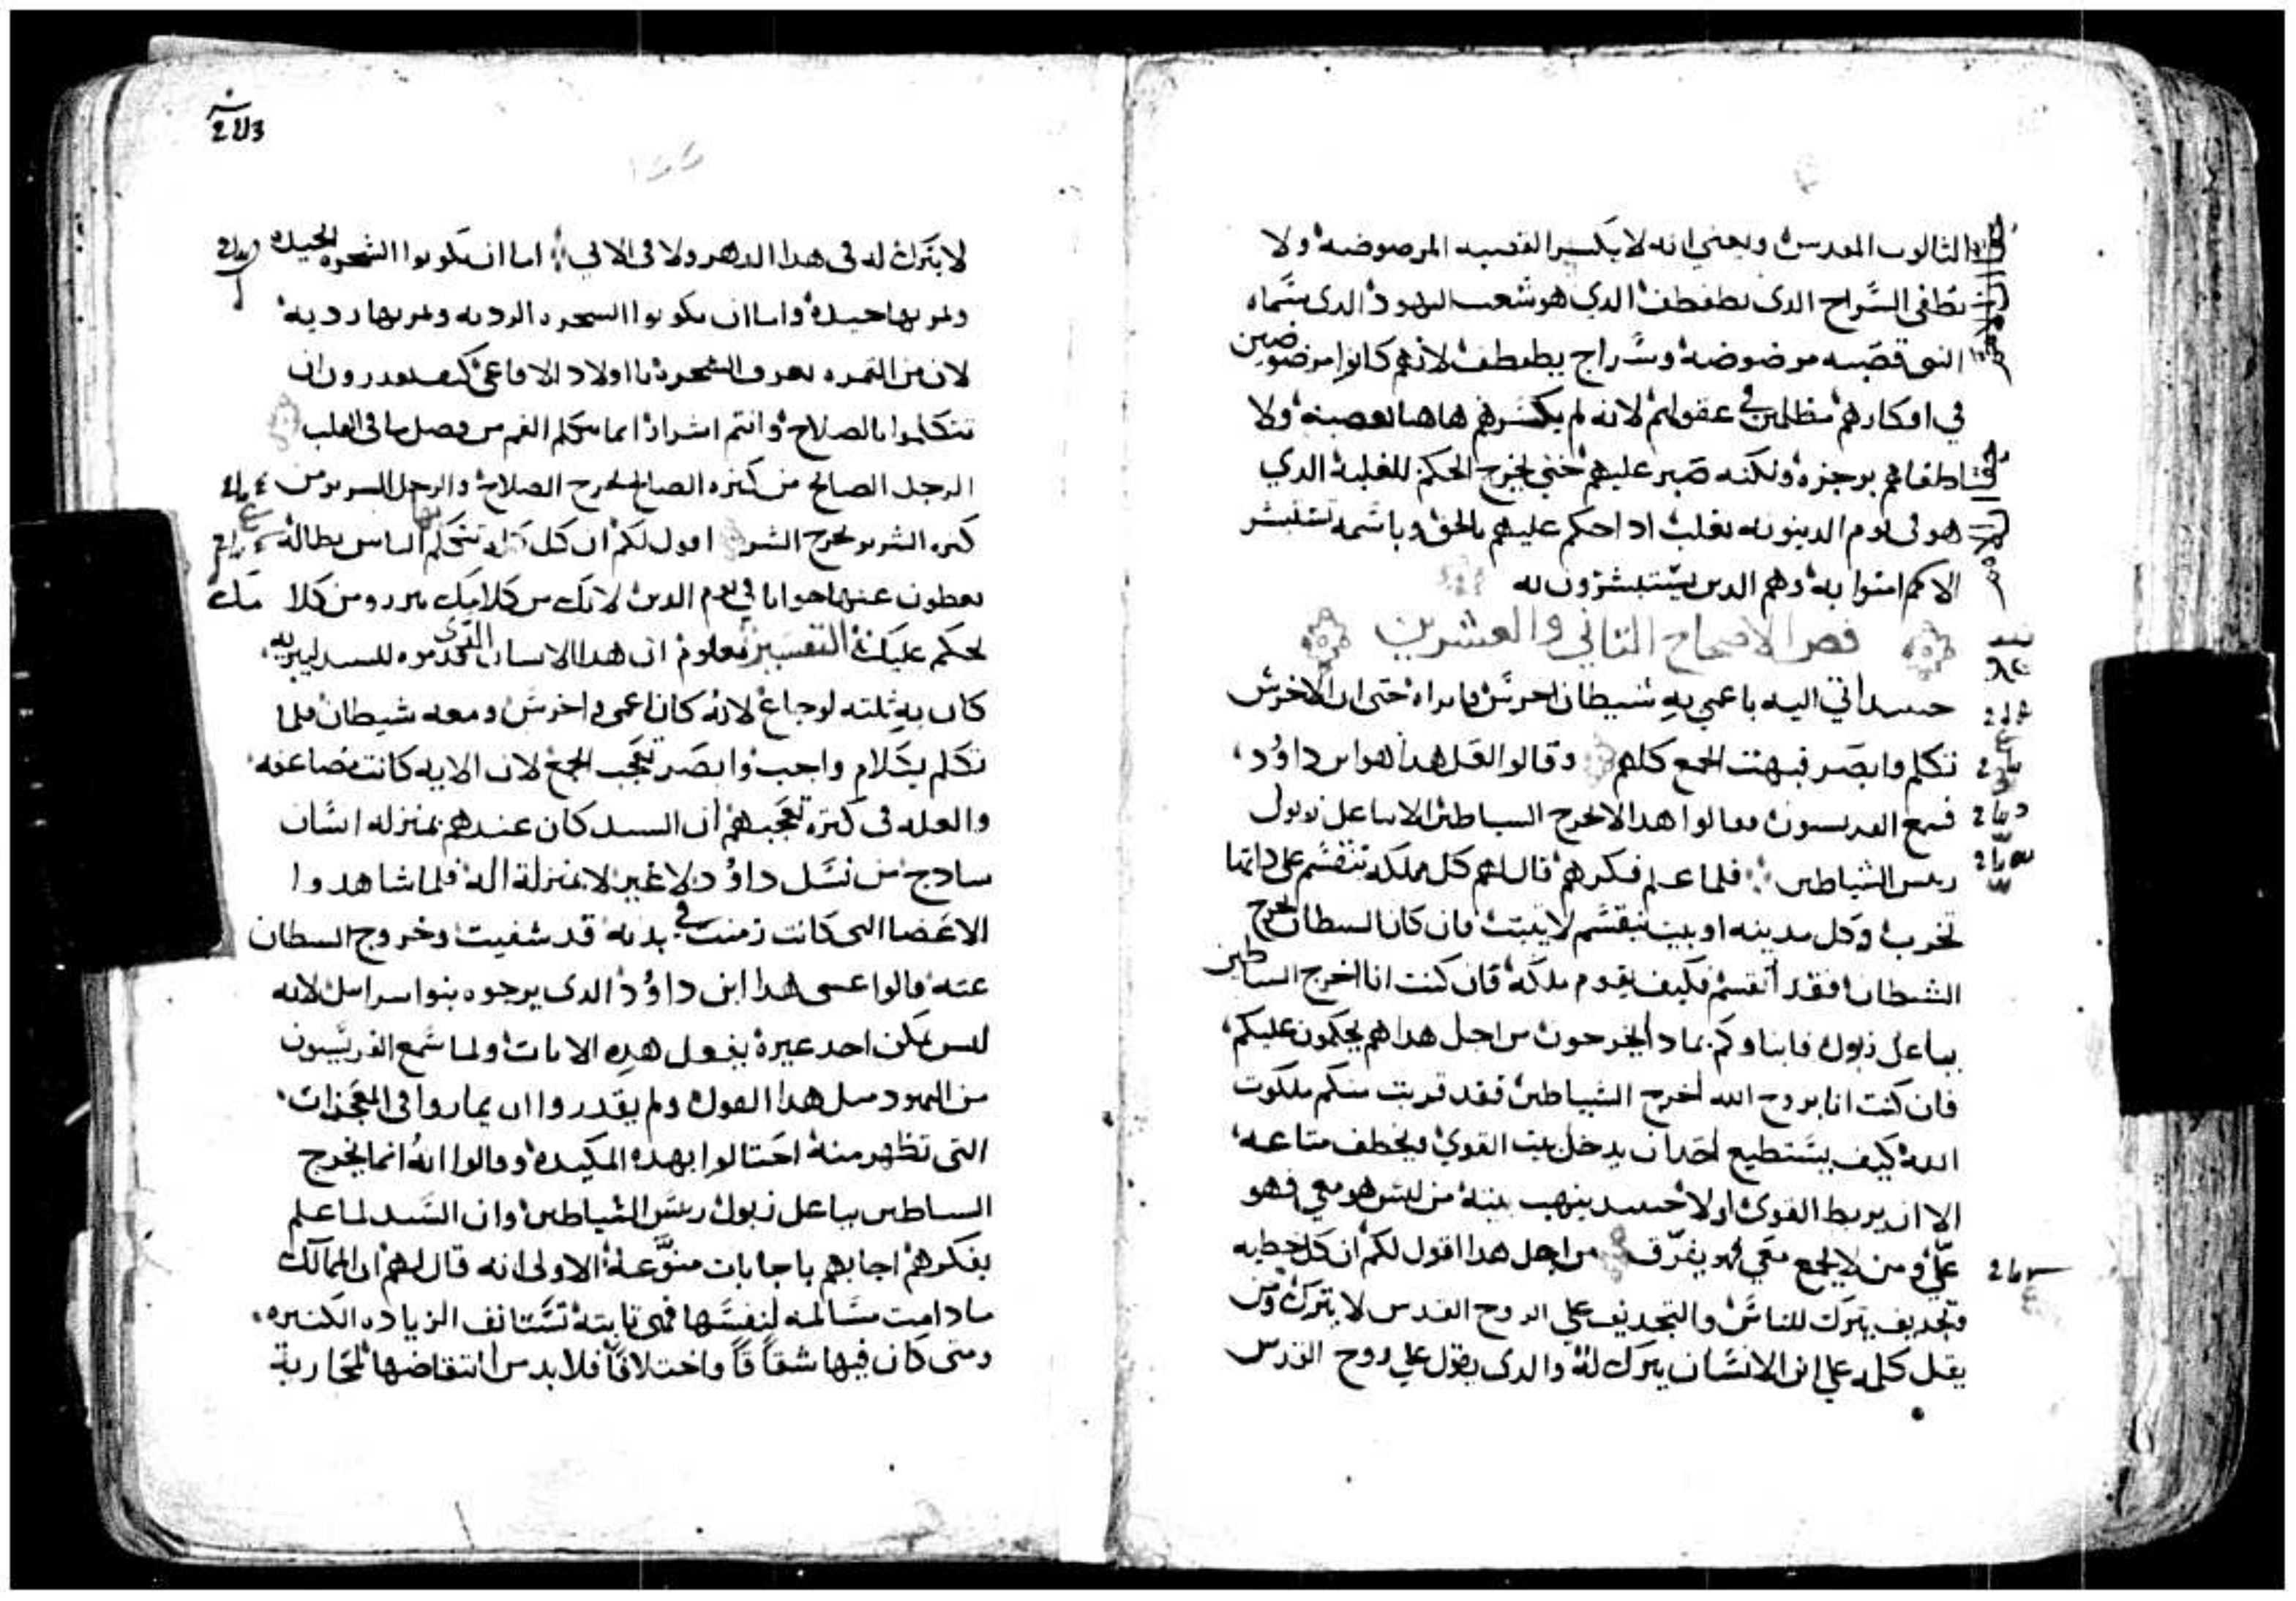 الثالوث المقدس ويعني انه لا يكسر القصبه المرضوضه ولا
تطفى السراج الدى يطفطف الدي هو شعب اليهود الدى سماه
النبى قصبه مرضوضه وسراج يطفطف لانهم كانوا مرضوضين
في افكارهم مظلمين في عقولهم لانه لم يكسرهم هاهنا بعصبه ولا
اطفاهم بوجزه ولكنه صبر عليهم حتى يخرج الحكم للغلبة الدي
هو فى يوم الدينونه يغلب ادا حكم عليهم بالحق وباسمه تستبشر
الامم امنوا به وهم الدين يستبشرون له
فص الاصحاح التاني والعشرين
حينيد اتي اليه باعمي به شيطان اخرس فابراه حتى ان الاخرس
تكلم وابصر فبهت الجمع كلهم وقالوا لعل هدا هو ابن داوود
فسمع الفريسيون فقالوا هدا لا يخرج الشياطين الا بباعل زبول
ريس الشياطين فلما علم فكرهم قال لهم كل مملكه تنقسم على داتها
تخرب وكل مدينه او بيت ينقسم لا يثبت فان كان الشيطان يخرج
الشيطان فقد انقسم فكيف يقوم ملكه فان كنت انا اخرج الشياطين
بباعل زبول فابناوكم بمادا يخرجون من اجل هدا هم يحكمون عليكم
فان كنت انا بروح الله اخرج الشياطين فقد قربت منكم ملكوت
الله كيف يستطيع احد ان يدخل بيت القوي ويخطف متاعه
الا ان يربط القوى اولا حينيد ينهب بيته من ليس هو معي فهو
عليّ ومن لا يجمع معي فهو يفرّق من اجل هدا اقول لكم ان كل خطيه
وتجديف يترك للناس والتجديف علي الروح القدس لا يترك ومن
يقل كلمه علي ابن الانسان يترك له والدى يقول علي روح القدس
لا يترك له فى هدا الدهر ولا فى الاتي اما ان تكونوا الشجره الجيده
وثمرتها جيده واما ان تكونوا الشجره الرديه وثمرتها رديه
لان من الثمره تعرف الشجره يا اولاد الافاعى كيف تقدرون ان
تتكلموا بالصلاح وانتم اشرار انما يتكلم الفم من فضل ما فى القلب
الرجل الصالح من كنزه الصالح يخرج الصلاح والرجل الشرير من
كنزه الشرير يخرج الشر اقول لكم ان كل كلمه تتكلم بها الناس بطاله
يعطون عنها جوابا في يوم الدين لانك من كلامك تبرر ومن كلامك
يحكم عليك التفسير معلوم ان هدا الانسان الدى قدموه للسيد ليبريه
كان به ثلثه اوجاع لانه كان اعمى واخرس ومعه شيطان فلما
تكلم بكلام واجب وابصر تعجب الجمع لان الايه كانت مضاعفه
والعله فى كثرة تعجبهم ان السيد كان عندهم بمنزله انسان
سادج من نسل داوود لا غير لا بمنزلة اله فلما شاهدوا
الاعضا التى كانت زمنت في بدنه قد شفيت وخروج الشيطان
عنه قالوا عسى هدا ابن داوود الدى يرجوه بنوا اسراييل لانه
ليس يمكن احد غيره يفعل هده الايات ولما سمع الفريسيون
من اليهود مثل هدا القول ولم يقدروا ان يماروا فى المعجزات
التى تظهر منه احتالوا بهده المكيده وقالوا انه انما يخرج
الشياطين بباعل زبول ريس الشياطين وان السيد لما علم
بفكرهم اجابهم باجابات متنوّعة الاولى انه قال لهم ان الممالك
مادامت مسالمه لنفسها فهى ثابتة تستانف الزياده الكثيره
ومتى كان فيها شقاقاً واختلافاً فلا بد من انتقاضها لمحاربة